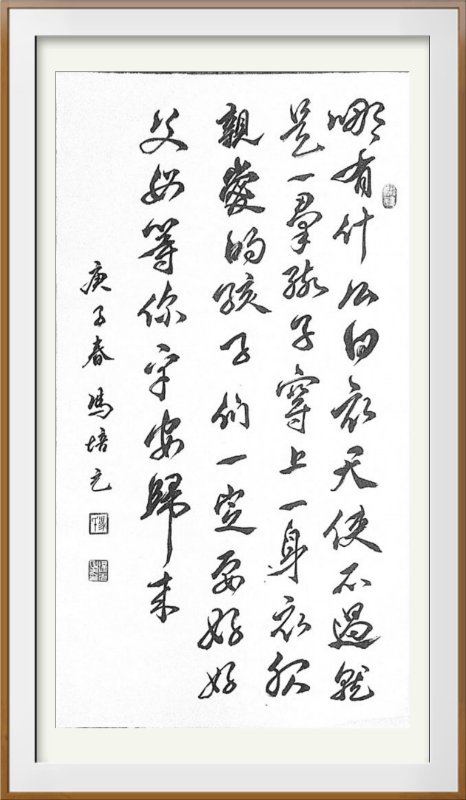 哪有什么白衣天使不过就
是一群孩子穿上一身衣服
親爱的孩子们一定要好好
父母等你平安歸来
庚子春 馮培元